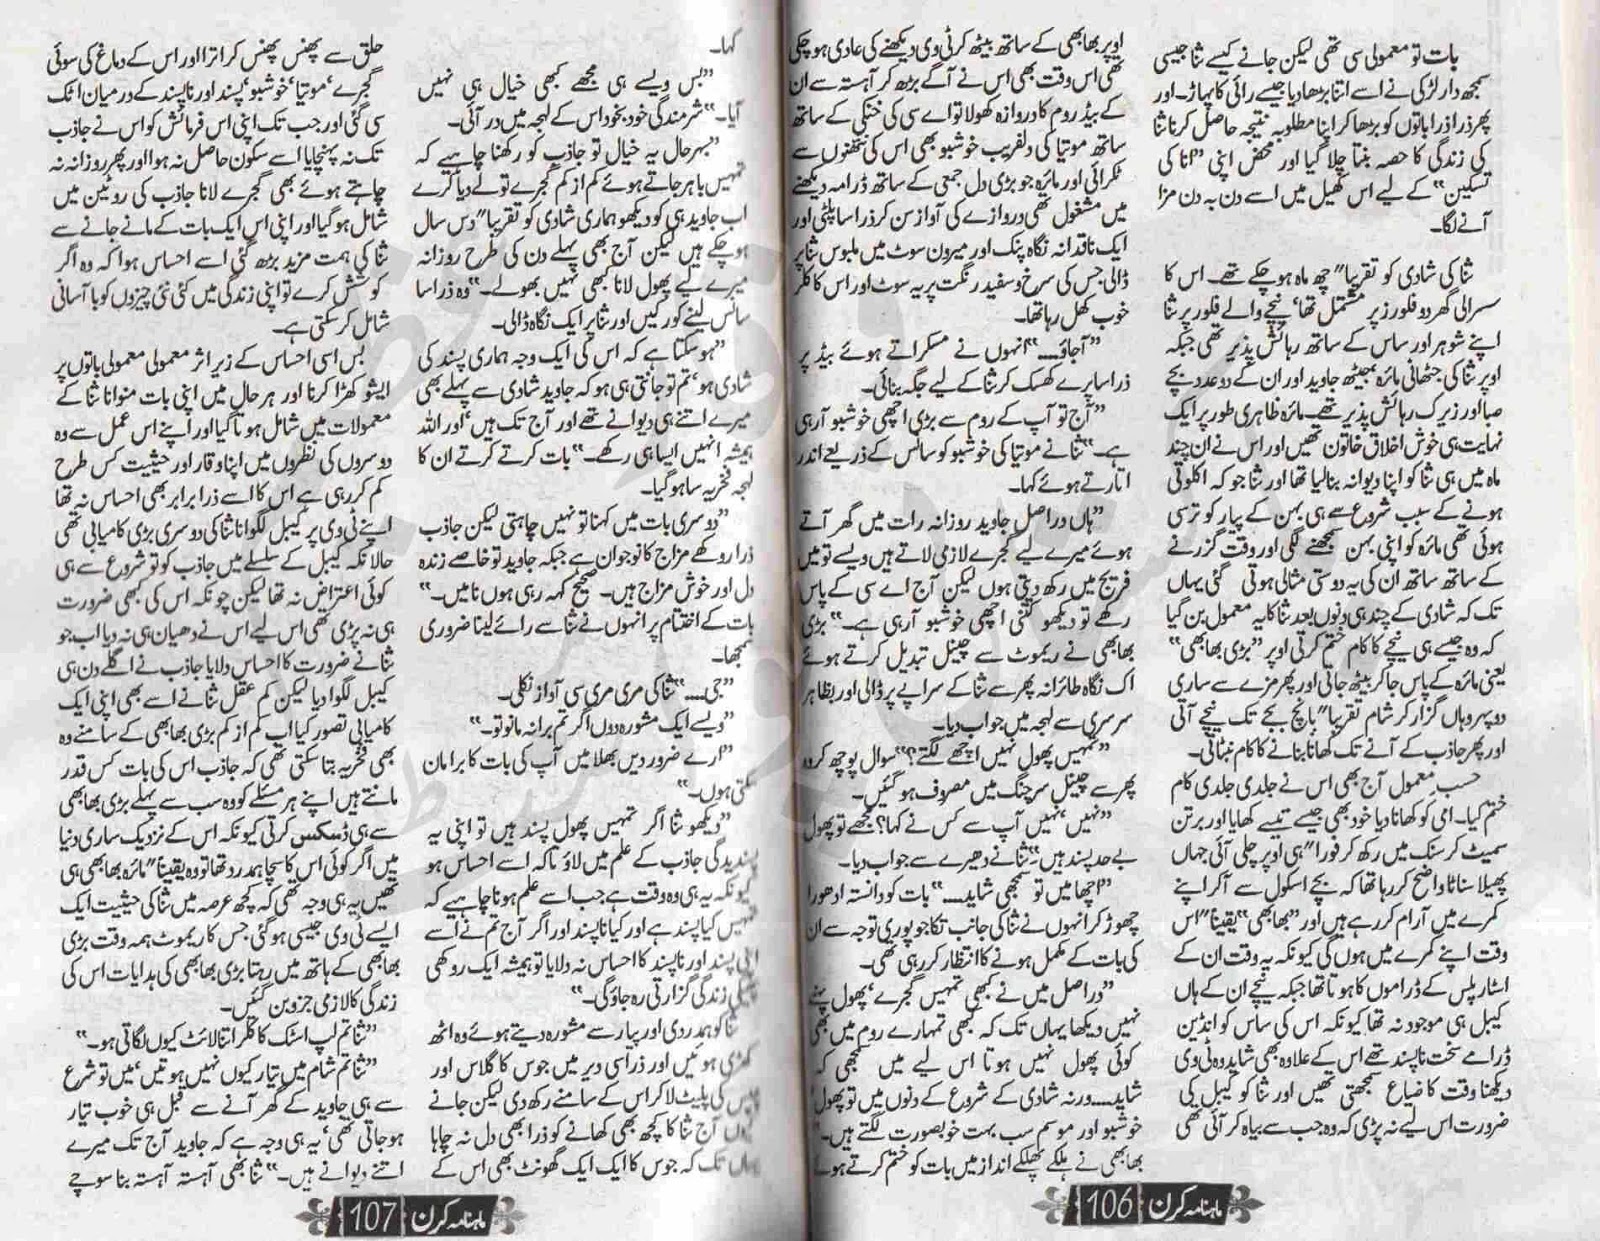 بات تو معمولی سی تھی لیکن جانے کیسے ثنا جیسی
سمجھ دار لڑکی نے اسے اتنا بڑھا دیا جیسے رائی کا پہاڑ۔ اور
پھر ذرا ذرا باتوں کو بڑھا کر اپنا مطلوبہ نتیجہ حاصل کرنا ثنا
کی زندگی کا حصہ بنتا چلا گیا اور محض اپنی "انا کی
تسکین" کے لیے اس کھیل میں اسے دن بہ دن مزا
آنے لگا۔
ثنا کی شادی کو تقریبا" چھ ماہ ہو چکے تھے۔ اس کا
سسرالی گھر دو فلورز پر مشتمل تھا' نیچے والے فلور پر ثنا
اپنے شوہر اور ساس کے ساتھ رہائش پذیر تھی جبکہ
اوپر ثنا کی جٹھانی مائرہ بمیٹھ جاوید اور ان کے دو عدد بچے
صبا اور زیرک رہائش پذیر تھے۔ مائرہ ظاہری طور پر ایک
نہایت ہی خوش اخلاق خاتون تھیں اور اس نے ان چند
ماہ میں ہی ثنا کو اپنا دیوانہ بنا لیا تھا اور ثنا جو کہ اکلوتی
ہونے کے سبب شروع سے ہی بہن کے پیار کو ترسی
ہوئی تھی مائرہ کو اپنی بہن سمجھنے لگی اور وقت گزرنے
کے ساتھ ساتھ ان کی یہ دوستی مثالی ہوتی گئی یہاں
تک کہ شادی کے چند ہی دنوں بعد ثنا کا یہ معمول بن گیا
کہ وہ جیسے ہی نیچے کا کام ختم کرتی اوپر "بڑی بھابھی"
یعنی مائرہ کے پاس جا کر بیٹھ جاتی اور پھر مزے سے ساری
دوپہر وہاں گزار کر شام تقریبا" پانچ بجے تک نیچے آتی
اور پھر جاذب کے آنے تک کھانا بنانے کا کام نبٹاتی۔
حسب معمول آج بھی اس نے جلدی جلدی کام
ختم کیا۔ امی کو کھانا دیا خود بھی جیسے تیسے کھایا اور برتن
سمیٹ کر سنک میں رکھ کر فورا" ہی اوپر چلی آئی جہاں
پھیلا سناٹا واضح کر رہا تھا کہ بچے اسکول سے آ کر اپنے
کمرے میں آرام کر رہے ہیں اور "بھابھی" یقینا" اس
وقت اپنے کمرے میں ہوں گی کیونکہ یہ وقت ان کے
اسٹار پلس کے ڈراموں کا ہوتا تھا جبکہ نیچے ان کے ہاں
کیبل ہی موجود نہ تھا کیونکہ اس کی ساس کو انڈین
ڈرامے سخت ناپسند تھے اس کے علاوہ بھی شاید وہ ٹی وی
دیکھنا وقت کا ضیاع سمجھتی تھیں اور ثنا کو کیبل کی
ضرورت اس لیے نہ پڑی کہ وہ جب سے بیاہ کر آئی تھی
اوپر بھابھی کے ساتھ بیٹھ کر ٹی وی دیکھنے کی عادی ہو چکی
تھی اس وقت بھی اس نے آگے بڑھ کر آہستہ سے ان
کے بیڈ روم کا دروازہ کھولا تو اے سی کی خنکی کے ساتھ
ساتھ موتیا کی دلفریب خوشبو بھی اس کی نتھنوں سے
ٹکرائی اور مائرہ جو بڑی دل جمعی کے ساتھ ڈرامہ دیکھنے
میں مشغول تھی دروازے کی آواز سن کر ذرا سا پلٹی اور
ایک ناقدانہ نگاہ پنک اور میرون سوٹ میں ملبوس ثنا پر
ڈالی جس کی سرخ و سفید رنگت پر یہ سوٹ اور اس کا کلر
خوب کھل رہا تھا۔
"آجاؤ...." انہوں نے مسکراتے ہوئے بیڈ پر
ذرا سا پرے کھسک کر ثنا کے لیے جگہ بنائی۔
"آج تو آپ کے روم سے بڑی اچھی خوشبو آ رہی
ہے۔" ثنا نے موتیا کی خوشبو کو سانس کے ذریعے اندر
اتارتے ہوئے کہا۔
"ہاں دراصل جاوید روزانہ رات میں گھر آتے
ہوئے میرے لیے گجرے لازمی لاتے ہیں ویسے تو میں
فریج میں رکھ دیتی ہوں لیکن آج اے سی کے پاس
رکھے تو دیکھو کتنی اچھی خوشبو آ رہی ہے۔" بڑی
بھابھی نے ریموٹ سے چینل تبدیل کرتے ہوئے
اک نگاہ طائرانہ پھر سے ثنا کے سراپے پر ڈالی اور بظاہر
سرسری سے لہجہ میں جواب دیا۔
"تمہیں پھول نہیں اچھے لگتے؟" سوال پوچھ کر وہ
پھر سے چینل سرچنگ میں مصروف ہو گئیں۔
"نہیں' نہیں آپ سے کس نے کہا؟ مجھے تو پھول
بے حد پسند ہیں۔" ثنا نے دھیرے سے جواب دیا۔
"اچھا میں تو سمجھی شاید...." بات کو دانستہ ادھورا
چھوڑ کر انہوں نے ثنا کی جانب تکا جو پوری توجہ سے ان
کی بات کے مکمل ہونے کا انتظار کر رہی تھی۔
"دراصل میں نے کبھی تمہیں گجرے' پھول پہنے
نہیں دیکھا یہاں تک کہ کبھی تمہارے روم میں بھی
کوئی پھول نہیں ہوتا اس لیے میں سمجھی کہ
شاید.... ورنہ شادی کے شروع کے دنوں میں تو پھول'
خوشبو اور موسم سب بہت خوبصورت لگتے ہیں۔"
بھابھی نے ہلکے پھلکے انداز میں بات کو ختم کرتے ہوئے
ماہنامہ کرن 106
کہا۔
"بس ویسے ہی مجھے کبھی خیال ہی نہیں
آیا۔" شرمندگی خود بخود اس کے لہجہ میں در آئی۔
"بہرحال یہ خیال تو جاذب کو رکھنا چاہیے کہ
تمہیں باہر جاتے ہوئے کم از کم گجرے تو لے دیا کرے
اب جاوید ہی کو دیکھو ہماری شادی کو تقریبا" دس سال
ہو چکے ہیں لیکن آج بھی پہلے دن کی طرح روزانہ
میرے لیے پھول لانا کبھی نہیں بھولے۔" وہ ذرا سا
سانس لینے کو رکیں اور ثنا پر ایک نگاہ ڈالی۔
"ہو سکتا ہے کہ اس کی ایک وجہ ہماری پسند کی
شادی ہو' تم تو جانتی ہی ہو کہ جاوید شادی سے پہلے بھی
میرے اتنے ہی دیوانے تھے اور آج تک ہیں' اور اللہ
ہمیشہ انہیں ایسا ہی رکھے۔" بات کرتے کرتے ان کا
لہجہ فخریہ سا ہو گیا۔
"دوسری بات میں کہنا تو نہیں چاہتی لیکن جاذب
ذرا روکھے مزاج کا نوجوان ہے جبکہ جاوید تو خاصے زندہ
دل اور خوش مزاج ہیں۔ صحیح کہہ رہی ہوں نا میں۔"
بات کے اختتام پر انہوں نے ثنا سے رائے لینا ضروری
سمجھا۔
"جی...." ثنا کی مری مری سی آواز نکلی۔
"ویسے ایک مشورہ دوں اگر تم برا نہ مانو تو۔"
"ارے ضرور دیں بھلا میں آپ کی بات کا برا مان
سکتی ہوں۔"
"دیکھو ثنا اگر تمہیں پھول پسند ہیں تو اپنی یہ
پسندیدگی جاذب کے علم میں لاؤ تاکہ اسے احساس ہو
کیونکہ یہ ہی وہ وقت ہے جب اسے علم ہونا چاہیے کہ
تمہیں کیا پسند ہے اور کیا ناپسند اور اگر آج تم نے اسے
اپنی پسند اور ناپسند کا احساس نہ دلایا تو ہمیشہ ایک روکھی
پھیکی زندگی گزارتی رہ جاؤ گی۔"
ثنا کو ہمدردی اور پیار سے مشورہ دیتے ہوئے وہ اٹھ
کھڑی ہوئیں اور ذرا سی دیر میں جوس کا گلاس اور
کی پلیٹ لا کر اس کے سامنے رکھ دی لیکن جانے
کیوں آج ثنا کا کچھ بھی کھانے کو ذرا بھی دل نہ چاہا
یہاں تک کہ جوس کا ایک ایک گھونٹ بھی اس کے
حلق سے پھنس پھنس کر اترا اور اس کے دماغ کی سوئی
گجرے' موتیا' خوشبو' پسند اور ناپسند کے درمیان اٹک
سی گئی اور جب تک اپنی اس فرمائش کو اس نے جاذب
تک نہ پہنچایا اسے سکون حاصل نہ ہوا اور پھر روزانہ نہ
چاہتے ہوئے بھی گجرے لانا جاذب کی روٹین میں
شامل ہو گیا اور اپنی اس ایک بات کے مانے جانے سے
ثنا کی ہمت مزید بڑھ گئی اسے احساس ہوا کہ وہ اگر
کوشش کرے تو اپنی زندگی میں کئی نئی چیزوں کو با آسانی
شامل کر سکتی ہے۔
بس اسی احساس کے زیر اثر معمولی معمولی باتوں پر
ایشو کھڑا کرنا اور ہر حال میں اپنی بات منوانا ثنا کے
معمولات میں شامل ہوتا گیا اور اپنے اس عمل سے وہ
دوسروں کی نظروں میں اپنا وقار اور حیثیت کس طرح
کم کر رہی ہے اس کا اسے ذرا برابر بھی احساس نہ تھا
اپنے ٹی وی پر کیبل لگوانا ثنا کی دوسری بڑی کامیابی تھی
حالانکہ کیبل کے سلسلے میں جاذب کو تو شروع سے ہی
کوئی اعتراض نہ تھا لیکن چونکہ اس کی کبھی ضرورت
ہی نہ پڑی تھی اس لیے اس نے دھیان ہی نہ دیا اب جو
ثنا نے ضرورت کا احساس دلایا جاذب نے اگلے دن ہی
کیبل لگوا دیا لیکن کم عقل ثنا نے اسے بھی اپنی ایک
کامیابی تصور کیا اب کم از کم بڑی بھابھی کے سامنے وہ
بھی فخریہ بتا سکتی تھی کہ جاذب اس کی بات کس قدر
مانتے ہیں اپنے ہر مسئلے کو وہ سب سے پہلے بڑی بھابھی
سے ہی ڈسکس کرتی کیونکہ اس کے نزدیک ساری دنیا
میں اگر کوئی اس کا سچا ہمدرد تھا تو وہ یقینا" مائرہ بھابھی ہی
تھیں یہ ہی وجہ تھی کہ کچھ عرصہ میں ثنا کی حیثیت ایک
ایسے ٹی وی جیسی ہو گئی جس کا ریموٹ ہمہ وقت بڑی
بھابھی کے ہاتھ میں رہتا بڑی بھابھی کی ہدایات اس کی
زندگی کا لازمی جزو بن گئیں۔
"ثنا تم لپ اسٹک کا کلر اتنا لائٹ کیوں لگاتی ہو۔"
"ثنا تم شام میں تیار کیوں نہیں ہوتیں' میں تو شروع
سے ہی جاوید کے گھر آنے سے قبل ہی خوب تیار
ہو جاتی تھی' یہ ہی وجہ ہے کہ جاوید آج تک میرے
اتنے دیوانے ہیں۔" ثنا بھی آہستہ آہستہ بنا سوچے
ماہنامہ کرن 107